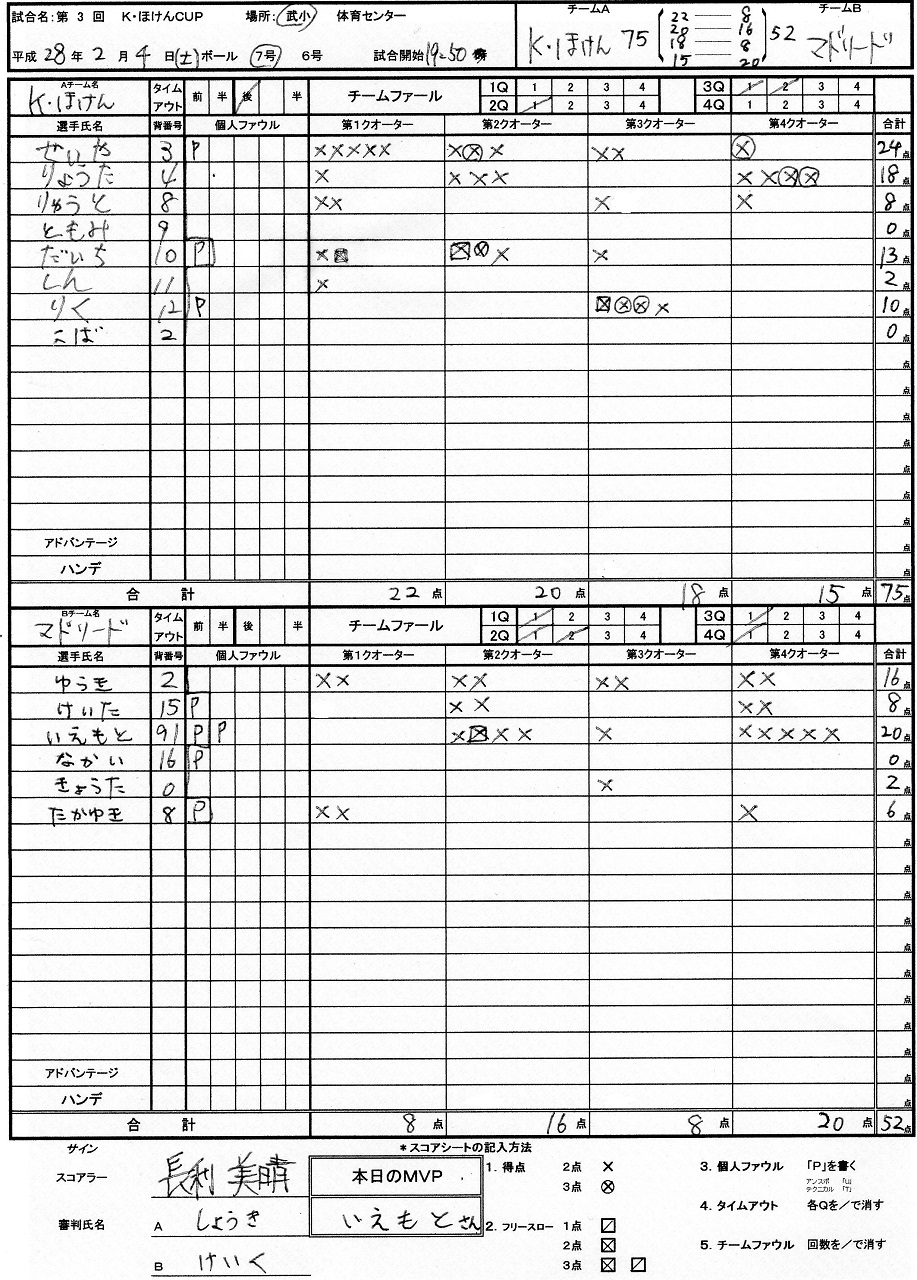 試合名:第 3 回 K・ほけんCUP 場所:武小 体育センター
平成 28 年 2 月 4 日(土) ボール 7号 6号 試合開始 19:50
チームA チームB
K・ほけん 75 52 マドリード
22 — 8
20 — 16
18 — 8
15 20
Aチーム名 K・ほけん タイムアウト 前 半 後 半 チームファール 1Q 1 2 3 4 3Q 1 2 3 4
2Q 1 2 3 4 4Q 1 2 3 4
選手氏名 背番号 個人ファウル 第1クオーター 第2クオーター 第3クオーター 第4クオーター 合計
せいや 3 P ××××× ×⊗× ×× ⊗ 24点
りょうた 4 × ××× ××⊗⊗ 18点
りゅうと 8 ×× × × 8点
ともみ 9 0点
だいち 10 P ×☒ ☒⊗× × 13点
しん 11 × 2点
りく 12 P ☒⊗⊗× 10点
こば 2 0点
点
点
点
点
点
点
点
アドバンテージ 点
ハンデ 点
合 計 22 点 20 点 18 点 15 点 75点
Bチーム名 マドリード タイムアウト 前 半 後 半 チームファール 1Q 1 2 3 4 3Q 1 2 3 4
2Q 1 2 3 4 4Q 1 2 3 4
選手氏名 背番号 個人ファウル 第1クオーター 第2クオーター 第3クオーター 第4クオーター 合計
ゆうき 2 ×× ×× ×× ×× 16点
けいた 15 P ×× ×× 8点
いえもと 91 P P ×☒×× × ××××× 20点
なかい 16 P 0点
きょうた 0 × 2点
たかゆき 8 P ×× × 6点
点
点
点
点
点
点
点
点
点
アドバンテージ 点
ハンデ 点
合 計 8 点 16 点 8 点 20 点 52点
サイン
スコアラー 長利 美晴
審判氏名 A しょうき
B けいく
本日のMVP
いえもとさん
*スコアシートの記入方法
1. 得点 2点 ×
3点 ⊗
2. フリースロー 1点 ⍁
2点 ☒
3点 ☒ ⍁
3. 個人ファウル 「P」を書く
アンスポ 「U」
テクニカル 「T」
4. タイムアウト 各Qを/で消す
5. チームファウル 回数を/で消す